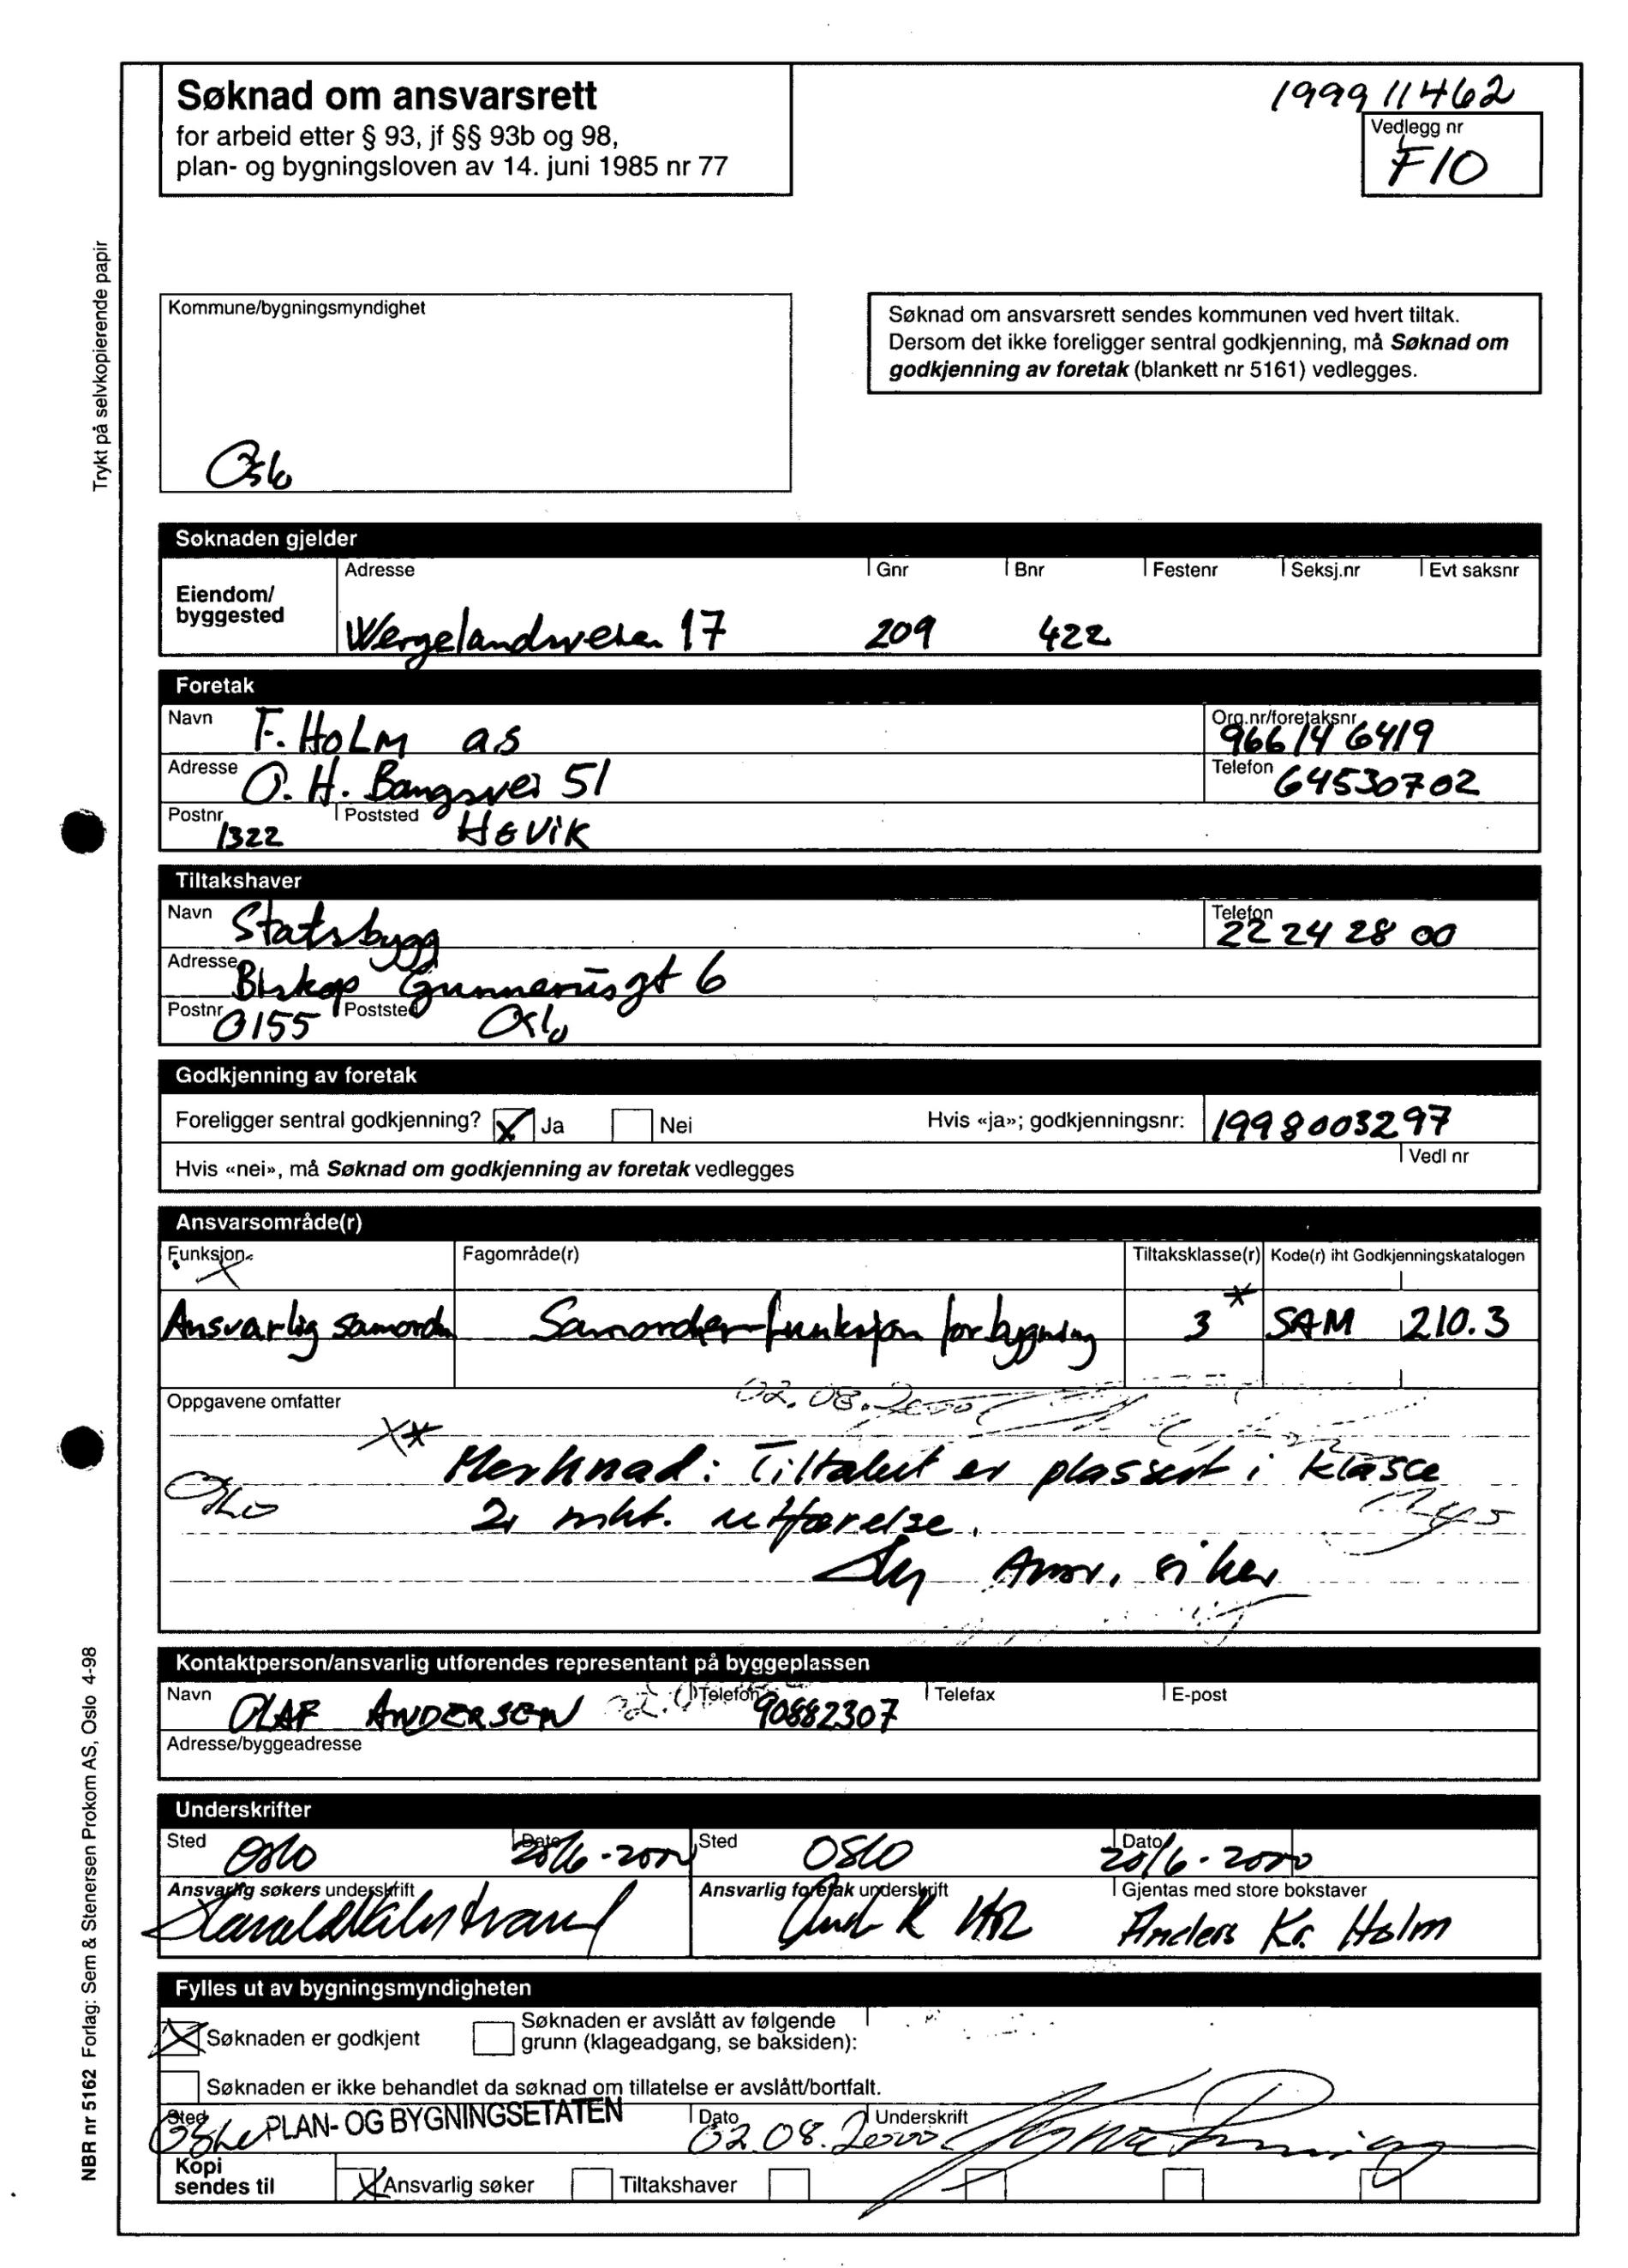 Søknad om ansvarsrett
for arbeid etter § 93, jf §§ 93b og 98,
plan- og bygningsloven av 14. juni 1985 nr 77
199911462
Vedlegg nr
F10
Trykt på selvkopierende papir
Kommune/bygningsmyndighet
Oslo
Søknad om ansvarsrett sendes kommunen ved hvert tiltak.
Dersom det ikke foreligger sentral godkjenning, må Søknad om
godkjenning av foretak (blankett nr 5161) vedlegges.
Søknaden gjelder
Eiendom/
byggested
Adresse Gnr Bnr Festenr Seksj.nr Evt saksnr
Wergelandsveien 17 209 422
Foretak
Navn F. HOLM as Org.nr/foretaksnr 966146419
Adresse O. H. Bangsvei 51 Telefon 64530702
Postnr 1322 Poststed HØVIK
Tiltakshaver
Navn Statsbygg Telefon 22 24 28 00
Adresse Biskop Gunnerusgt 6
Postnr 0155 Poststed Oslo
Godkjenning av foretak
Foreligger sentral godkjenning? X Ja Nei Hvis «ja»; godkjenningsnr: 1998003297
Hvis «nei», må Søknad om godkjenning av foretak vedlegges Vedl nr
Ansvarsområde(r)
Funksjon Fagområde(r) Tiltaksklasse(r) Kode(r) iht Godkjenningskatalogen
Ansvarlig samordn Samordnerfunksjon for bygning 3* SAM 210.3
Oppgavene omfatter 02.08.2000
Merknad: Tiltaket er plassert i klasse
Oslo
2, mht. utførelse.
Ansv. søker
Kontaktperson/ansvarlig utførendes representant på byggeplassen
Navn OLAF ANDERSEN Telefon 90882307 Telefax E-post
Adresse/byggeadresse
Underskrifter
Sted Oslo Dato 20/6-2000 Sted OSLO Dato 20/6-2000
Ansvarlig søkers underskrift Ansvarlig foretak underskrift Gjentas med store bokstaver
Anders Kr. Holm
Fylles ut av bygningsmyndigheten
X Søknaden er godkjent Søknaden er avslått av følgende
grunn (klageadgang, se baksiden):
Søknaden er ikke behandlet da søknad om tillatelse er avslått/bortfalt.
Sted Oslo PLAN- OG BYGNINGSETATEN Dato 02.08.2000 Underskrift
Kopi
sendes til X Ansvarlig søker Tiltakshaver
NBR nr 5162 Forlag: Sem & Stenersen Prokom AS, Oslo 4-98